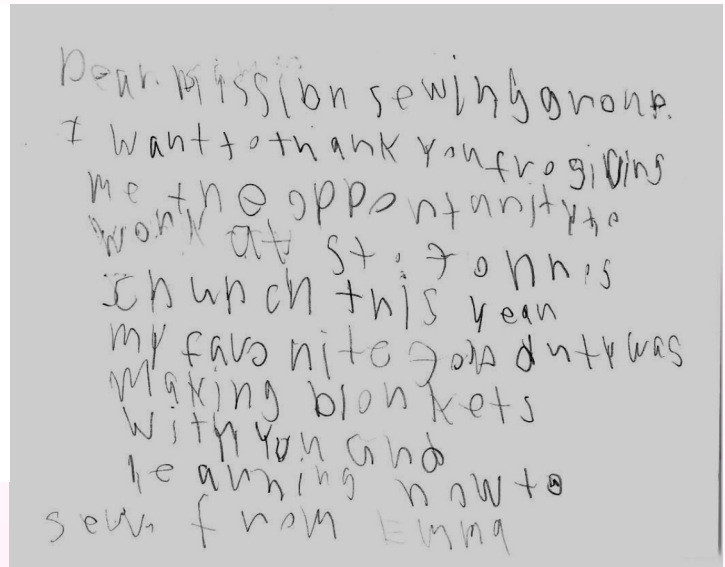 Dear Mission sewing group.
I want to thank you fro giving
me the opportunity to
work at St. Johns
church this year
my favorite job duty was
Making blankets
with you and
learning how to
sew. from Emma